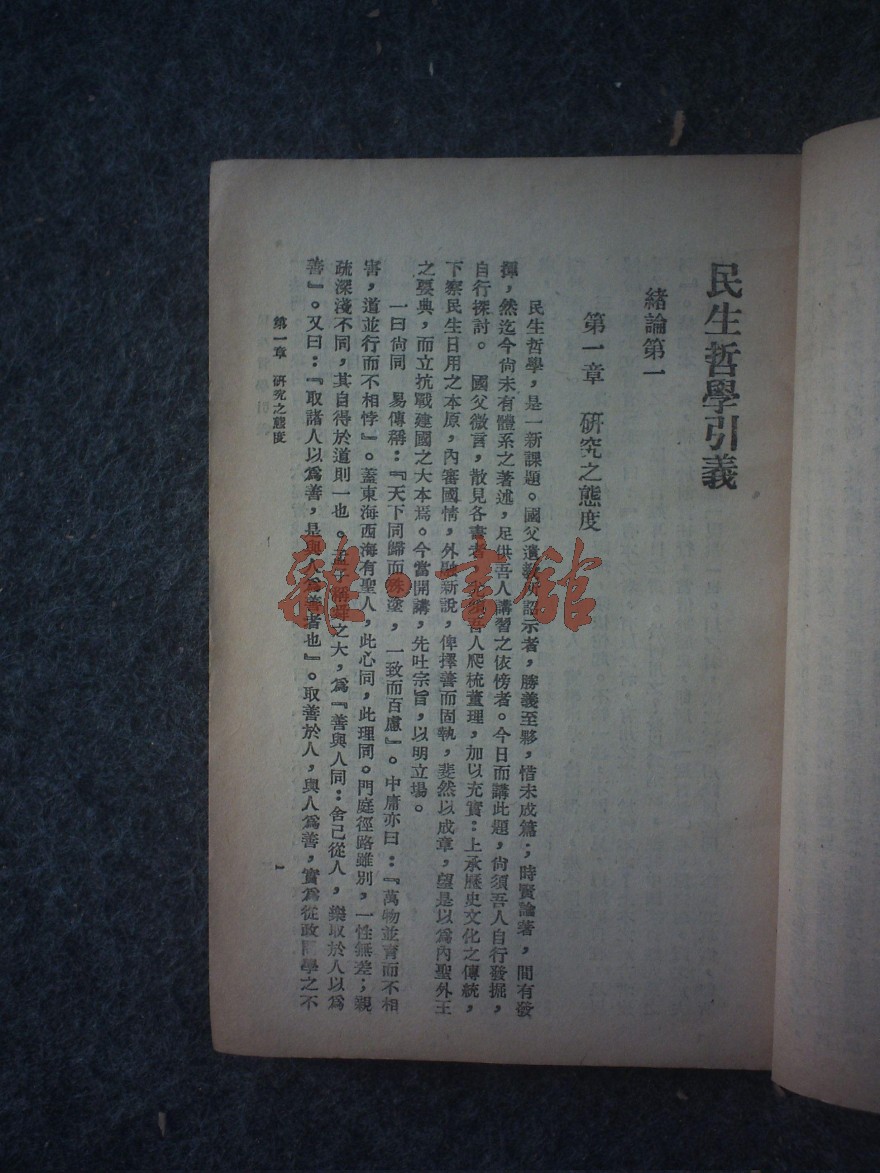 民生哲學引義
緒論第一
第一章 研究之態度
民生哲學，是一新課題。國父遺教所詔示者，勝義至夥，惜未成篇；時賢論著，間有發
揮，然迄今尚未有體系之著述，足供吾人講習之依傍者。今日而講此題，尚須吾人自行發掘，
自行探討。 國父微言，散見各書者，吾人爬梳董理，加以充實：上承歷史文化之傳統，
下察民生日用之本原，內審國情，外融新說，俾擇善而固執，斐然以成章，望是以爲內聖外王
之要典，而立抗戰建國之大本焉。今當開講，先吐宗旨，以明立場。
一曰尙同 易傳稱：『天下同歸而殊塗，一致而百慮』。中庸亦曰：『萬物並育而不相
害，道並行而不相悖』。蓋東海西海有聖人，此心同，此理同。門庭徑路雖別，一性無差；親
疏深淺不同，其自得於道則一也。孟子稱舜之大，爲『善與人同：舍己從人，樂取於人以爲
善』。又曰：『取諸人以爲善，是與人爲善者也』。取善於人，與人爲善，實爲從政學之不
第一章 研究之態度
一
雜·書館